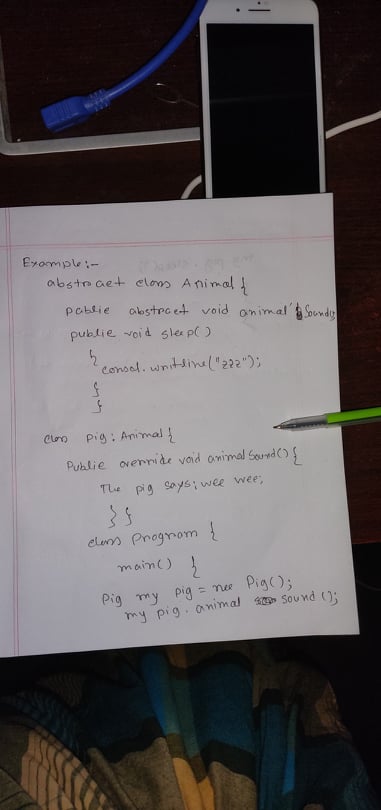 Example:-
abstract class Animal {
public abstract void animal Sound();
public void sleep()
{
consol.writline("zzz");
}
}
class pig: Animal {
Public override void animal Sound() {
The pig says: wee wee;
} }
class Program {
main() {
Pig my pig = new Pig();
my pig. animal sound ();